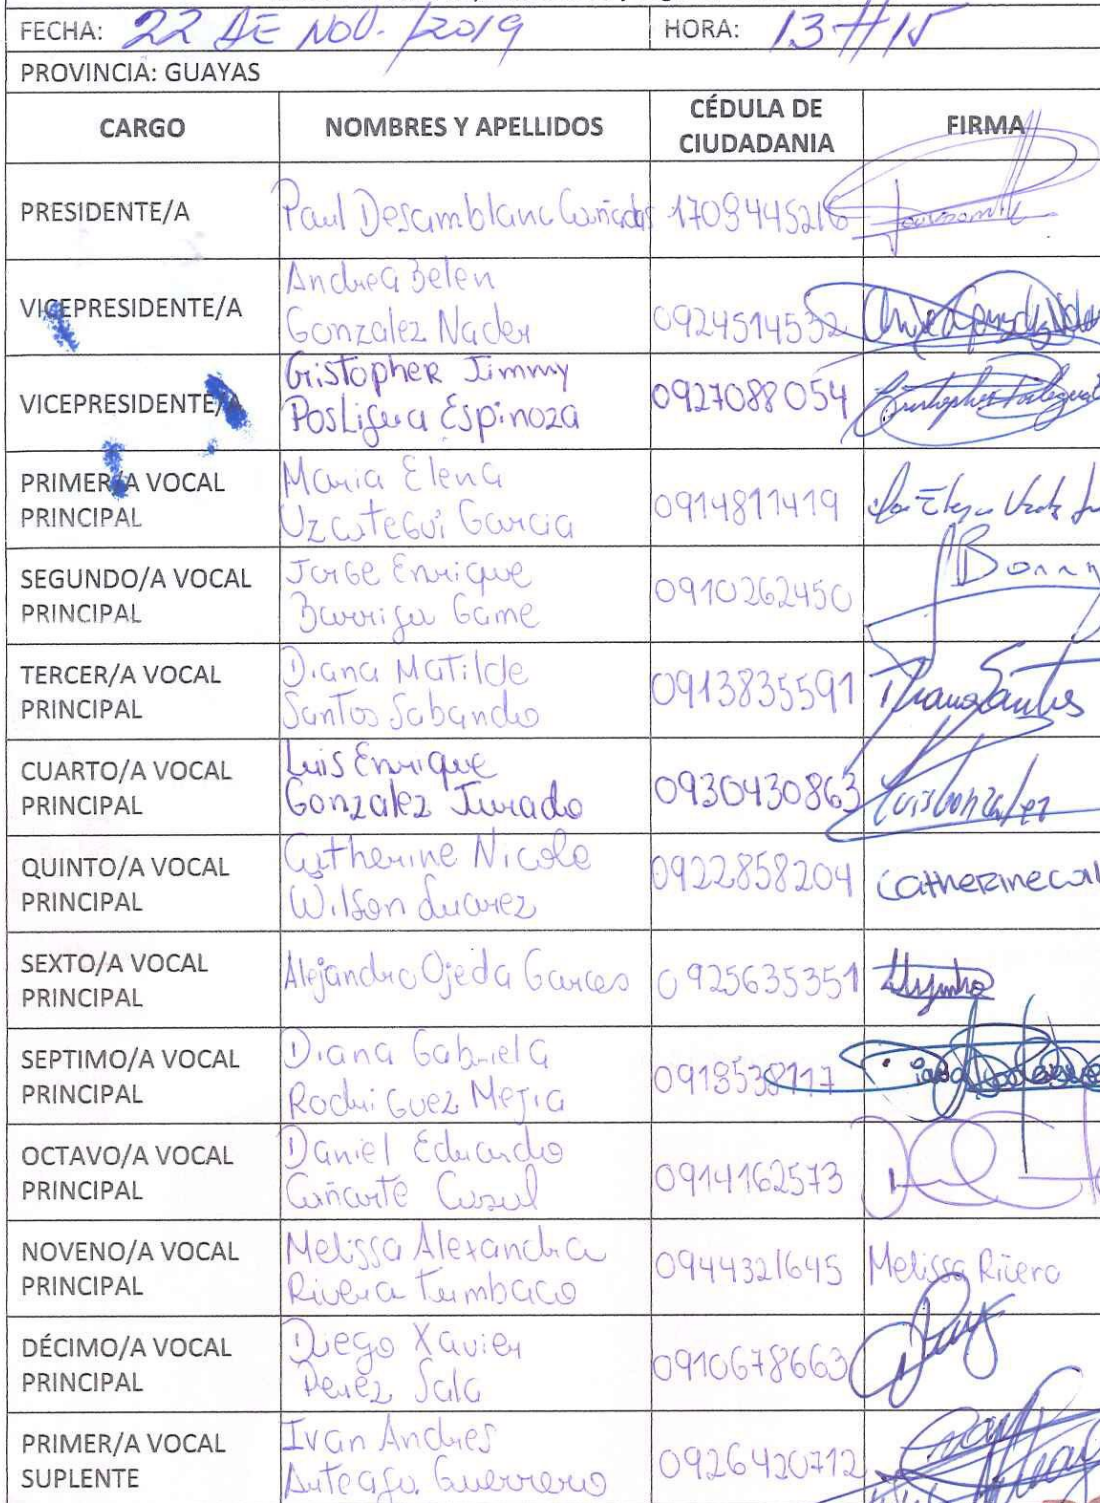 FECHA: 22 DE NOV. /2019 HORA: 13H15
PROVINCIA: GUAYAS
CARGO NOMBRES Y APELLIDOS CÉDULA DE CIUDADANIA FIRMA
PRESIDENTE/A Paul Desamblanc Cañadas 1709445216
VICEPRESIDENTE/A Andrea Belen Gonzalez Nader 0924514532
VICEPRESIDENTE/A Cristopher Jimmy Posligua Espinoza 0927088054
PRIMER/A VOCAL PRINCIPAL Maria Elena Uzcategui Garcia 0914811419
SEGUNDO/A VOCAL PRINCIPAL Jorge Enrique Barriga Game 0910262450
TERCER/A VOCAL PRINCIPAL Diana Matilde Santos Sabando 0913835591 Diana Santos
CUARTO/A VOCAL PRINCIPAL Luis Enrique Gonzalez Jurado 0930430863 Luis Gonzalez
QUINTO/A VOCAL PRINCIPAL Catherine Nicole Wilson Suarez 0922858204 Catherine Wil
SEXTO/A VOCAL PRINCIPAL Alejandro Ojeda Garces 0925635351
SEPTIMO/A VOCAL PRINCIPAL Diana Gabriela Rodriguez Mejia 0918538117
OCTAVO/A VOCAL PRINCIPAL Daniel Eduardo Cañarte 0914162573
NOVENO/A VOCAL PRINCIPAL Melissa Alexandra Rivera Tumbaco 0944321645 Melissa Rivera
DÉCIMO/A VOCAL PRINCIPAL Diego Xavier Perez Sala 0910678663
PRIMER/A VOCAL SUPLENTE Ivan Andres Arteaga Guerrero 0926420712